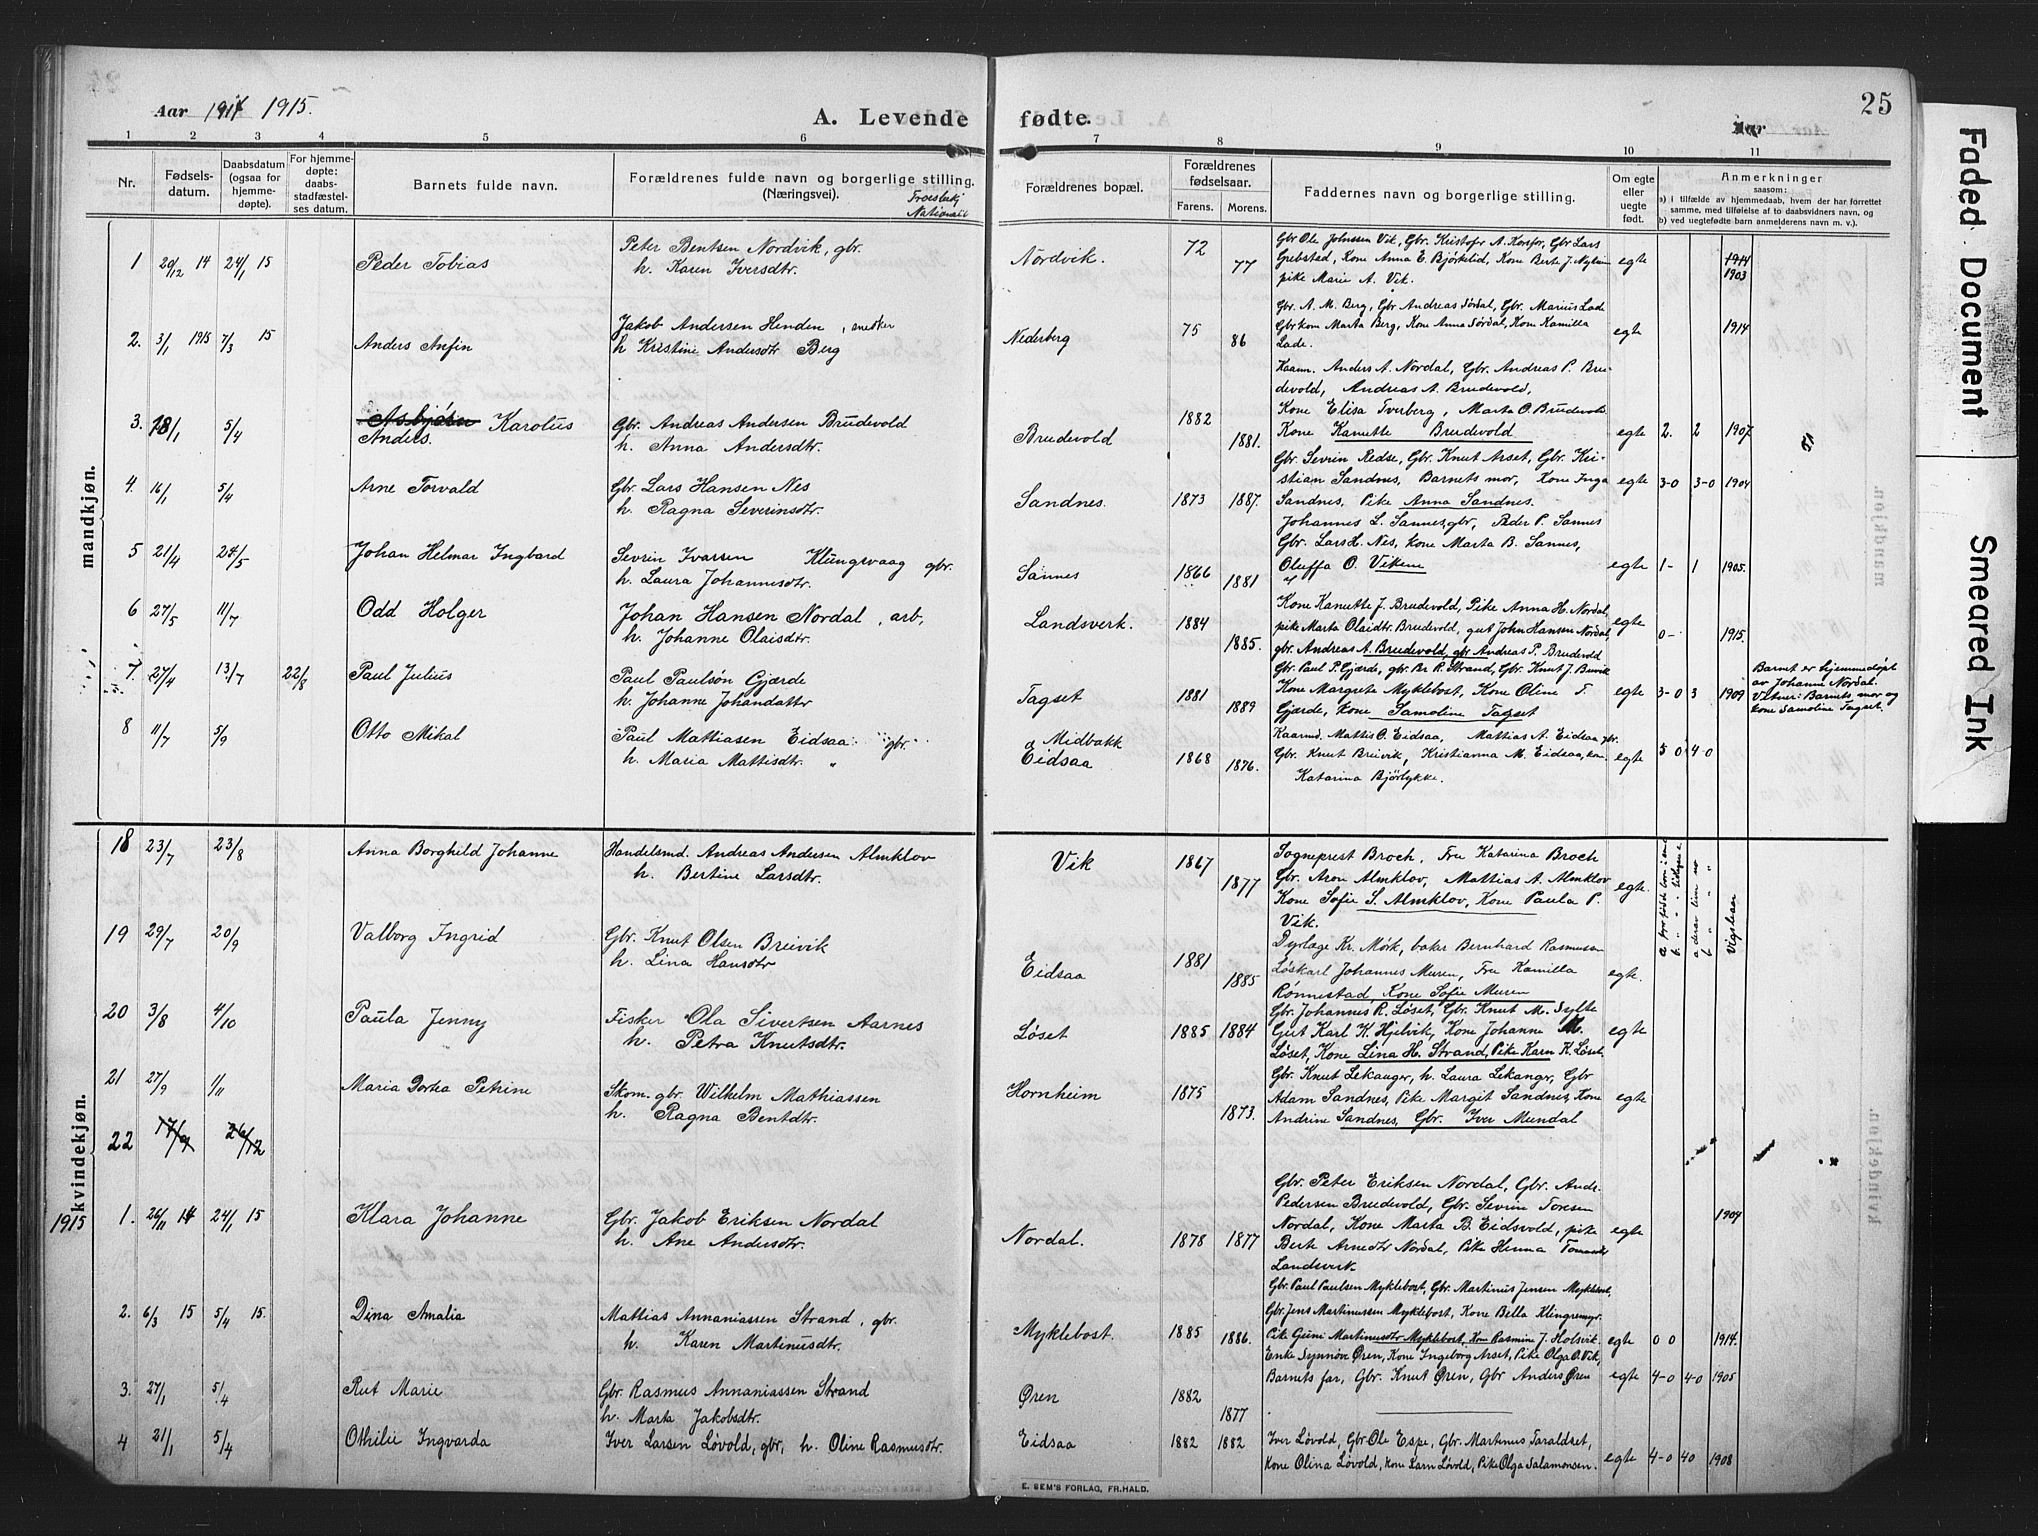 Aar 1914 1915.
A. Levende
fødte.
Aar
25
1 2 3 4 5 6 7 8 9 10 11
Nr.
Fødsels-
datum.
Daabsdatum
(ogsaa for
hjemme-
døpte).
For hjemme-
døpte:
daabs-
stadfæstel-
ses datum.
Barnets fulde navn.
Forældrenes fulde navn og borgerlige stilling.
(Næringsvei).
Troesbekj
Nationalit
Forældrenes bopæl.
Forældrenes
fødselsaar.
Farens. Morens.
Faddernes navn og borgerlige stilling.
Om egte
eller
uegte
født.
Anmerkninger
saasom:
a) i tilfælde av hjemmedaab, hvem der har forrettet
samme, med tilføielse af to daabsvidners navn, og
b) ved uegtefødte barn anmelderens navn m. v.).
mandkjøn.
1 20/12 14 24/1 15 Peder Tobias
Peter Bentsen Nordvik, gbr.
h. Karen Iversdtr.
Nordvik. 72 77
Gbr Ole Johnssen Vik, Gbr. Kristofer A. Korsfor, Gbr Lars
Grebstad, Kone Anna E. Bjørkelid, Kone Berte J.
pike Marie A. Vik.
egte 1914
1903
2. 3/1 1915 7/3 15 Anders Anfin
Jakob Andersen Henden, snedker
h Kristine Andersdtr Berg
Nederberg 75 86
Gbr. A. M. Berg, Gbr Andreas Sørdal, Gbr. Marius Lade
Gbrkom Marta Berg, Kone Anna Sørdal, Kone Kamilla
Lade.
egte 1914
3. 18/1 5/4 Asbjørn Karolus
Anders.
Gbr. Andreas Andersen Brudevold
h. Anna Andersdtr.
Brudevold 1882 1881.
Kaarm. Anders A. Nordal, Gbr. Andreas P. Bru-
devold, Andreas A. Brudevold,
Kone Elisa Tverberg, Marta O. Brudevold
Kone Kanutte Brudevold
egte 2. 2 1907
4. 16/1 5/4 Arne Torvald
Gbr. Lars Hansen Nes
h. Ragna Severinsdtr.
Sandnes. 1873 1887.
Gbr. Sevrin Redse, Gbr. Knut Arset, Gbr. Kri-
stian Sandnes, Barnets mor, Kone Inga
Sandnes, Pike Anna Sandnes.
egte 3-0 3-0 1904
5 21/4 24/5 Johan Helmar Ingbard
Sevrin Ivarsen Klungsvaag gbr.
h. Laura Johannesdtr.
Sannes 1866 1881
Johannes L. Sannes, gbr, Peder P. Sannes
Gbr. Lars H. Nes, kone Marta B. Sannes,
Oluffa O. Vikene
egte 1- 1 1905.
6 27/5 11/7 Odd Holger
Johan Hansen Nordal, arb,
h. Johanne Olaisdtr.
Landsverk. 1884 1885.
Kone Kanutte J. Brudevold, Pike Anna H. Nordal,
pike Marta Olaidtr. Brudevold, gut John Hansen Nordal,
gbr. Andreas A. Brudevold, gbr Andreas P. Brudevold
egte 0- 1915.
7. 27/4 13/7 22/8 Paul Julius
Paul Paulsøn Gjærde
h. Johanne Johandatter
Tagset 1881 1889
Gbr. Paul P. Gjærde, gbr Br R. Strand, Gbr. Knut J. Buvik
Kone Margrete Myklebost, Kone Oline T.
Gjærde, Kone Samoline Tagset
egte 3-0 3 1909
Barnet er hjemmedøpt
av Johanne Nordal.
Vitner: Barnets mor og
kone Samoline Tagset.
8 11/7 5/9 Otto Mikal
Paul Mattiasen Eidsaa gbr.
h. Maria Mattisdtr. „
Midbakk
Eidsaa 1868 1876.
Kaarmd. Mattis O. Eidsaa, Mattias A. Eidsaa gbr.
Gbr. Knut Breivik, Kristianna M. Eidsaa, kone
Katarina Bjørlykke.
egte 5 0 4 0
kvindekjøn.
18 23/7 23/8 Anna Borghild Johanne
Handelsmd. Andreas Andersen Almklov
h. Bertine Larsdtr.
Vik 1867 1877
Sogneprest Broch, Fru Katarina Broch
Gbr. Aron Almklov, Mattias A. Almklov
Kone Sofie S. Almklov, Kone Paula P.
Vik.
egte.
Vigselsaar
19 29/7 20/9 Valborg Ingrid
Gbr. Knut Olsen Breivik
h. Lina Hansdtr
Eidsaa 1881 1885
Dyrlæge Kr. Mørk, baker Bernhard Rasmussen
Løskarl Johannes Muren, Fru Kamilla
Rønnestad, Kone Sofie Muren
egte.
20 3/8 4/10 Paula Jenny
Fisker Ola Sivertsen Aarnes
h. Petra Knutsdtr.
Løset 1885 1884
Gbr. Johannes R. Løset, Gbr. Knut M. Sylte
Gut Karl K. Hjelvik, Kone Johanne M.
Løset, Kone Lina H. Strand, Pike Karn K. Løset
egte
21 27/9 1/11 Maria Dorka Petrine
Skom. gbr. Wilhelm Mathiassen
h. Ragna Bentdtr.
Hornheim 1875 1873.
Gbr. Knut Lekanger, h. Laura Lekangr, Gbr
Adam Sandnes, Pike Margit Sandnes, Kone
Andrine Sandnes, Gbr. Iver Mundal
egte
22 17/9 26/12
1915 1. 26/11 14 24/1 15 Klara Johanne
Gbr. Jakob Eriksen Nordal
h. Ane Andersdtr.
Nordal. 1878 1877
Gbr. Peter Eriksen Nordal, Gbr. Andr.
Pedersen Brudevold, Gbr. Sevrin Toresen
Nordal, Kone Marta B. Eidsvold, pike
Berte Arnedtr Nordal, Pike Henna
Landsverk
egte 1904
2. 6/3 15 5/4 15. Dina Amalia
Mattias Annaniassen Strand, gbr.
h. Karen Martinusdtr.
Myklebost. 1885 1886.
Gbr. Paul Paulsen Myklebost, Gbr. Martinus Jensen Myklebost,
Gbr. Jens Martinussen Myklebost, Kone Bella Klingremyr.
Pike Guni Martinusdtr Myklebost, Kone Rasmine J. Holsvik.
egte 0 0 1914.
3. 27/1 5/4 Rut Marie
Gbr. Rasmus Annaniassen Strand
h. Marta Jakobsdtr.
Øren 1882 1877
Enke Synnøve Øren, Kone Ingeborg Arset, Pike Olga O. Vik,
Barnets far, Gbr. Knut Øren, Gbr Anders Øren
egte 4-0 4-0 1905
4 21/1 5/4 Othilie Ingvarda
Iver Larsen Løvold, gbr, h. Oline Rasmusdtr.
Eidsaa 1882 1882
Iver Løvold, Gbr Ole Espe, Gbr. Martinus Taraldset,
Kone Olina Løvold, Kone Karn Løvold, Pike Olga Salamonsen.
egte 4-0 40 1908
E. SEM'S FORLAG, FR.HALD.
Faded Document
Smeared Ink